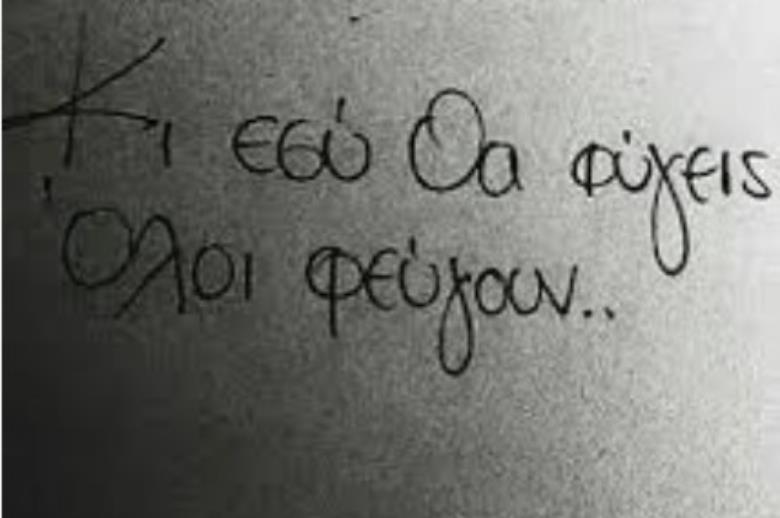 Κι εσύ θα φύγεις
Όλοι φεύγουν..